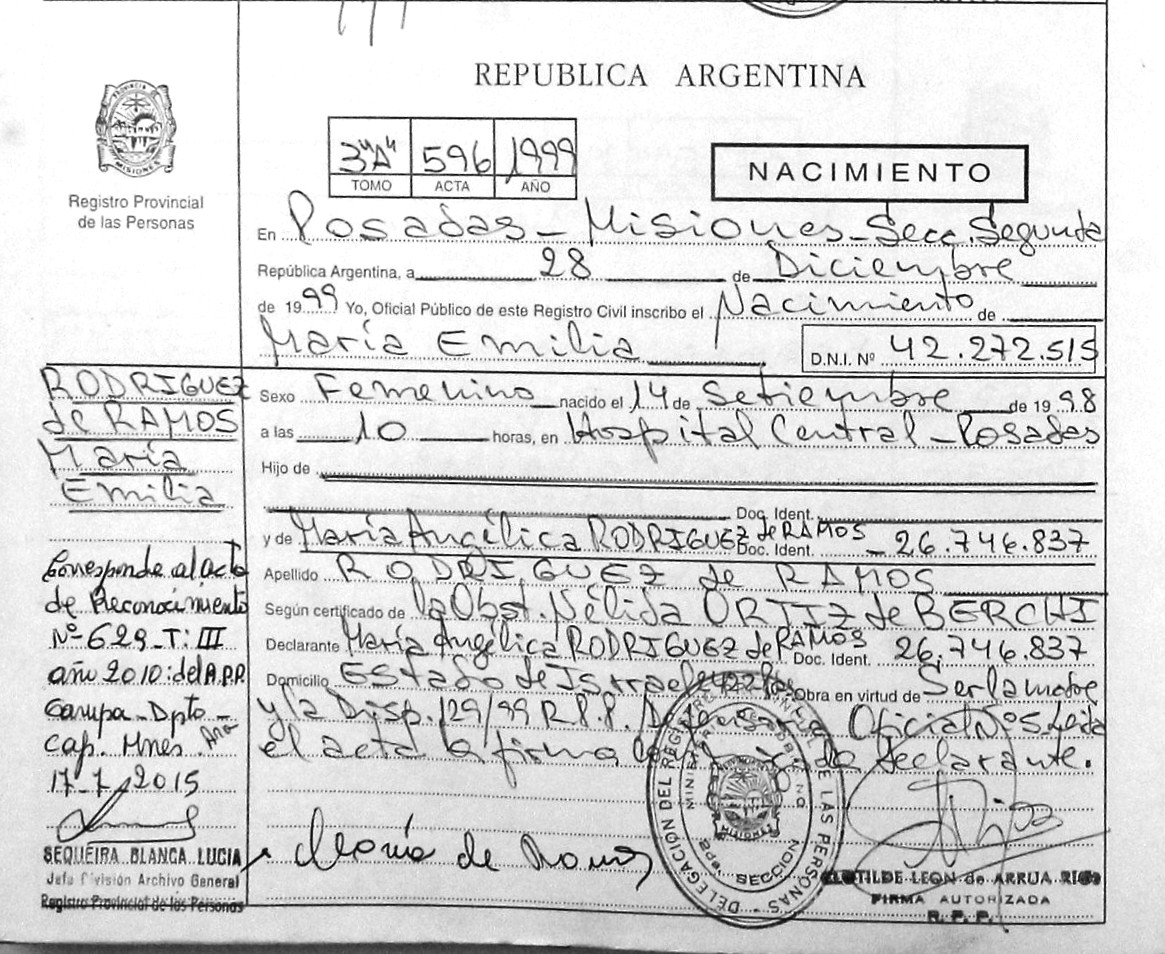 REPUBLICA ARGENTINA
PROVINCIA DE
MISIONES
Registro Provincial
de las Personas
3"A" 596 1999
TOMO ACTA AÑO
NACIMIENTO
En Posadas - Misiones - Secc. Segunda
República Argentina, a 28 de Diciembre
de 1999 Yo, Oficial Público de este Registro Civil inscribo el Nacimiento de
María Emilia D.N.I. Nº 42.272.515
Sexo Femenino nacido el 14 de Setiembre de 1998
a las 10 horas, en Hospital Central - Posadas
Hijo de
Doc. Ident.
y de María Angélica RODRIGUEZ de RAMOS Doc. Ident. 26.746.837
Apellido RODRIGUEZ de RAMOS
Según certificado de la Obst. Nélida ORTIZ de BERCHI
Declarante María Angélica RODRIGUEZ de RAMOS Doc. Ident. 26.746.837
Domicilio Estado de Israel Obra en virtud de Ser la madre
y la Disp. 129/99 R.P.P. Oficial Nº 5 Leída
el acta la firma de declarante.
RODRIGUEZ
de RAMOS
María
Emilia
Corresponde al acta
de Reconocimiento
Nº 629 - T: III
año 2010: del A.P.P.
Dpto -
Cap. Mnes
17-7-2015
SEQUEIRA BLANCA LUCIA
Jefa División Archivo General
Registro Provincial de las Personas
María de Ramos
DELEGACION DEL REGISTRO PROVINCIAL DE LAS PERSONAS
MINISTERIO DE GOBIERNO
SECCION
MISIONES
CLOTILDE LEON de ARRUA RIOS
FIRMA AUTORIZADA
R. P. P.